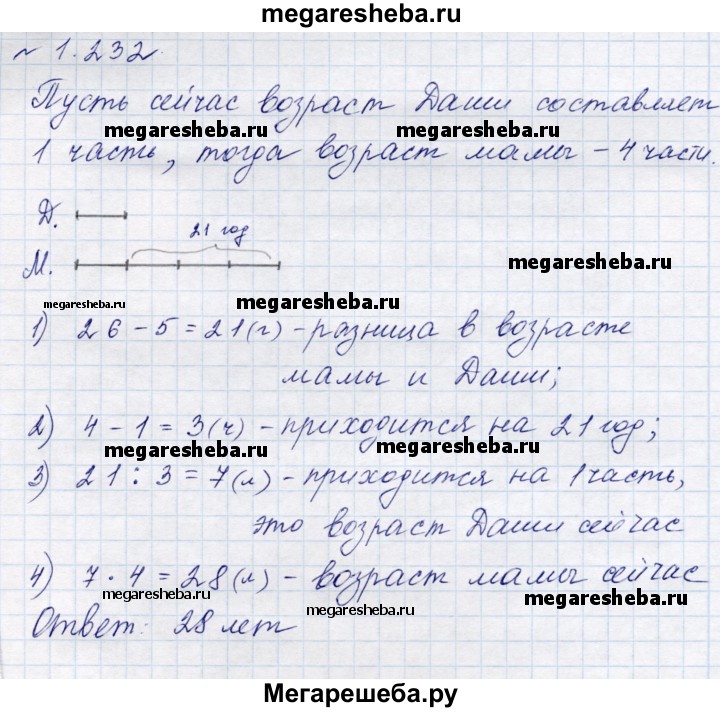 megaresheba.ru
№ 1.232.
Пусть сейчас возраст Даши составляет
megaresheba.ru megaresheba.ru
1 часть, тогда возраст мамы – 4 части.
Д.
21 год
М.
megaresheba.ru
megaresheba.ru megaresheba.ru
1) 26 - 5 = 21 (г) - разница в возрасте
мамы и Даши;
2) 4 - 1 = 3 (ч) - приходится на 21 год;
megaresheba.ru megaresheba.ru
3) 21 : 3 = 7 (л) - приходится на 1 часть,
это возраст Даши сейчас
4) 7 · 4 = 28 (л) - возраст мамы сейчас
megaresheba.ru megaresheba.ru megaresheba.ru
Ответ: 28 лет
Мегарешеба.ру